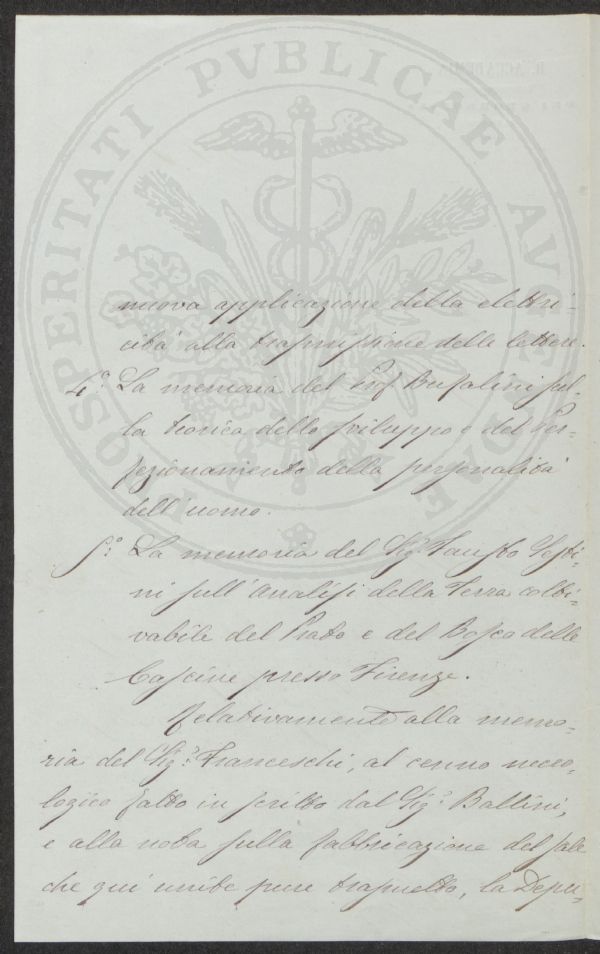 PROSPERITATI PVBLICAE AVGENDAE
nuova applicazione della elettri-
cità alla trasmissione delle lettere.
4.° La memoria del Prof. Bufalini sul-
la teorica dello sviluppo e del Per-
fezionamento della personalità
dell'uomo.
5.° La memoria del Sig.r Fausto Sesti-
ni sull'Analisi della Terra colti-
vabile del Prato e del Bosco delle
Cascine presso Firenze.
Relativamente alla memo-
ria del Sig.r Franceschi, al cenno necro-
logico fatto in scritto dal Sig.r
e alla nota sulla fabbricazione del sale
che qui unite pure trasmetto, la Depu-